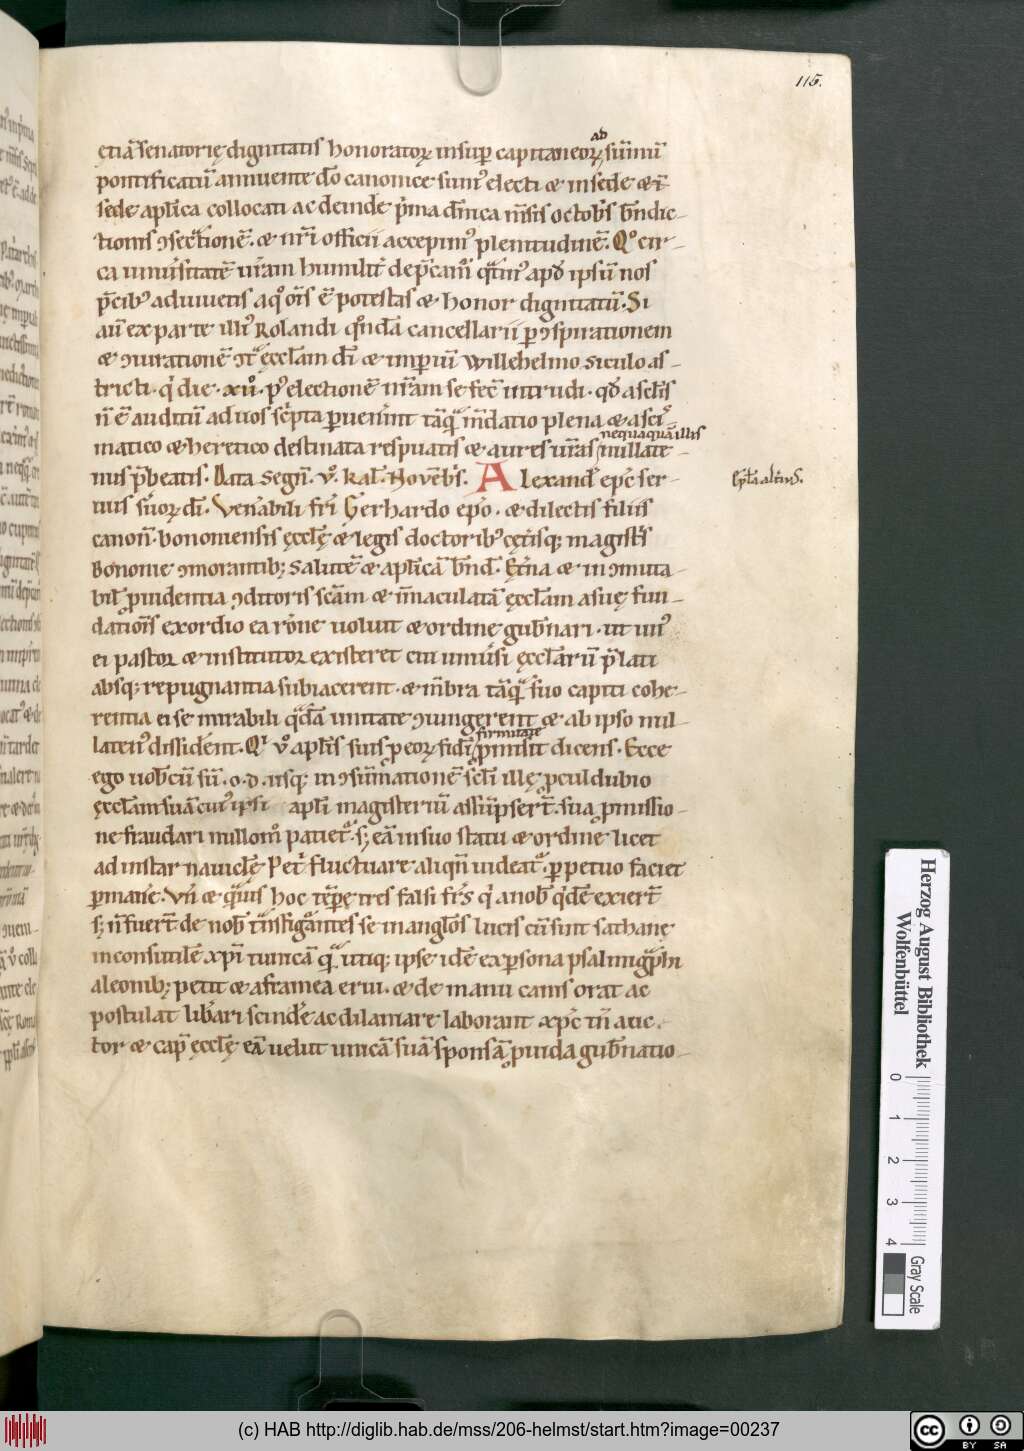 115.
ęcïā senatorię dignitatis honoratoꝝ insuꝑ capitaneoꝝ ab sūmū
pontificatū annuente dō canonice sum᷒ electi & in sede &
sede aplica collocati ac deinde p̄ma dn̄ica m̄sis octob̄s bn̄dic-
tionis ꝯsec̄tionē. & nr̄i officii accepim᷒ plenitudinē. Qͦ cir-
ca uniūsitatē ur̄am humilit̄ dep̄cam᷒ q̄tin᷒ apd̄ ipsū nos
p̄cib᷒ adiuuetis a qͦ om̄s ē potestas & honor dignitatū. Si
aū ex parte illi᷒ Rolandi qͦndā cancellarii ꝑ ꝯspirationem
& ꝯiurationē ꝯt̄ ęccl̄am dī & imperiū Willehelmo siculo as-
tricti. qͥ die. xii. p᷒ electionē nr̄am se fec̄ intrudi. qd̄ a scl̄is
n̄ ē auditū ad uos sc̄pta ꝑuener̄int tāq̄ m̄datio plena & a sci᷒-
matico & heretico destinata respuatis & aures ur̄as nequaquā illis nullate-
nus p̄beatis. Data Segn̄. v. kal̄. Nouēb̄s. Alexand̄ epc̄ ser-
uus s̄uoꝝ dī. Venr̄abili fr̄i Gerhardo epō. & dilectis filiis
Epl̄a alt̄ius.
canon̄. bononiensis ęccl̄ę & legis doctorib᷒ cęt̄isq; magist̄s
Bononie ꝯmorantib; salutē & aplicā bn̄d̄. Et̄na & inꝯmuta-
bil̄ ꝓuidentia ꝯditoris sc̄am & īmaculatā ęccl̄am a suę fun-
dation̄s exordio ea rōne uoluit & ordine gub̄nari. ut un᷒
ei pastor & institutor existeret cui uniūsi ęccl̄arū p̄lati
absq; repugnantia subiacerent. & m̄bra tāq̄ suo capiti cohe-
rentia ei se mirabili q̄dā unitate ꝯiungerent & ab ipso nul-
laten᷒ dissidēnt. Qͥ v᷒ apl̄is suis ꝑ eoꝝ fidī firmitate ꝓmisit dicens. Ecce
ego uob̄cū sū. o. d. usq; in ꝯsūmationē sc̄li ille ꝓcul dubio
ęccl̄am suā cui᷒ ipsi apl̄i magisteriū assūpsert̄. sua ꝓmissio-
ne fraudari nullom᷒ patiet᷒. s; eā in suo statu & ordine licet
ad instar nauiclę Pet̄ fluctuare aliqn̄ uideat᷒. ꝑpetuo faciet
ꝑmanēre. Vn̄ & q̄uis hoc tēpre tres falsi fr̄s qͥ a nob̄ qͥdē exiert̄
s; n̄ fuert̄ de nob̄ tn̄sfigͣntes se in angl̄os lucis cū sint sathanę
inconsutilē xp̄i tunicā q̄ utiq; ipse idē ex ꝑsona psalmigͣphi
a leonib; petit & a framea erui. & de manu canis orat ac
postulat lib̄ari scind̄e ac dilaniare laborant xp̄c tn̄ auc-
tor & cap̄ ęccl̄ę eā uelut unicā suā sponsā ꝓuida gub̄natio-
Herzog August Bibliothek
Wolfenbüttel
0 1 2 3 4
Gray Scale
(c) HAB http://diglib.hab.de/mss/206-helmst/start.htm?image=00237
cc BY SA